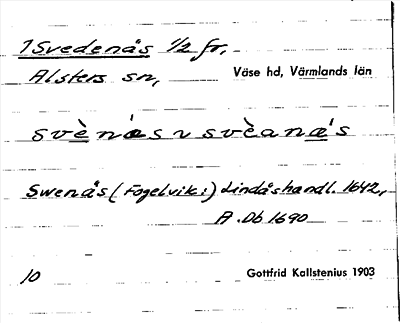 1 Svedenås 1/2 fr.
Alsters sn, Väse hd, Värmlands län
svènǽs v svèanǽs
Swenås (Fogelvik:) Lindåshandl. 1642,
A. Db 1690
10 Gottfrid Kallstenius 1903